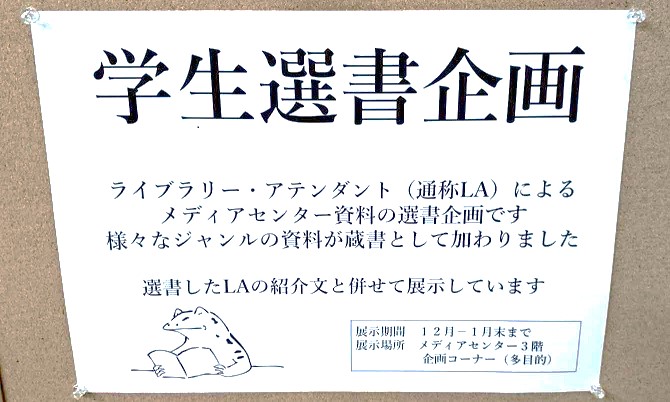 学生選書企画
ライブラリー・アテンダント（通称LA）による
メディアセンター資料の選書企画です
様々なジャンルの資料が蔵書として加わりました
選書したLAの紹介文と併せて展示しています
展示期間　１２月－１月末まで
展示場所　メディアセンター３階
企画コーナー（多目的）